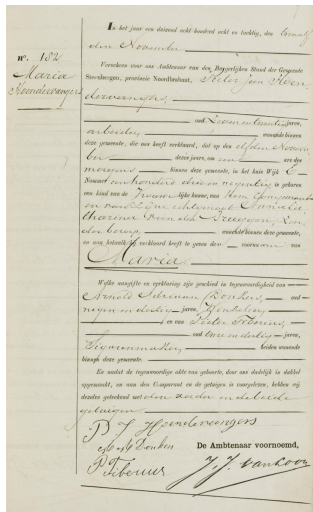 No. 182
Maria
In het jaar een duizend acht honderd acht en tachtig, den twaalf
den November
Verscheen voor ons Ambtenaar van den Burgerlijken Stand der Gemeente
Steenbergen, provincie Noordbrabant, Pieter Jan
oud zeven en twintig jaren,
arbeider wonende binnen
deze gemeente, die ons heeft verklaard, dat op den elfden Novem
ber dezes jaars, om een ure des
morgens binnen deze gemeente, in het huis Wijk
Nummer een honderd drie en negentig is geboren
een kind van de Vrouwelijke kunne, van hem Comparant
en van zijne echtgenoot
zon
der beroep, wonende binnen deze gemeente,
en aan hetwelk hij verklaard heeft te geven den voornaam van
Maria.
Welke aangifte en verklaring zijn geschied in tegenwoordigheid van
Arnold Adrianus Donkers, oud
negen en dertig jaren,
en van Pieter
oud twee en dertig jaren,
Sigarenmaker, beiden wonende
binnen deze gemeente.
En nadat de tegenwoordige akte van geboorte, door ons dadelijk is dubbel
opgemaakt, en aan den Comparant en de getuigen is voorgelezen, hebben wij
dezelve geteekend met den vader en de beide
getuigen
P J
De Ambtenaar voornoemd,
J. J. van Loon